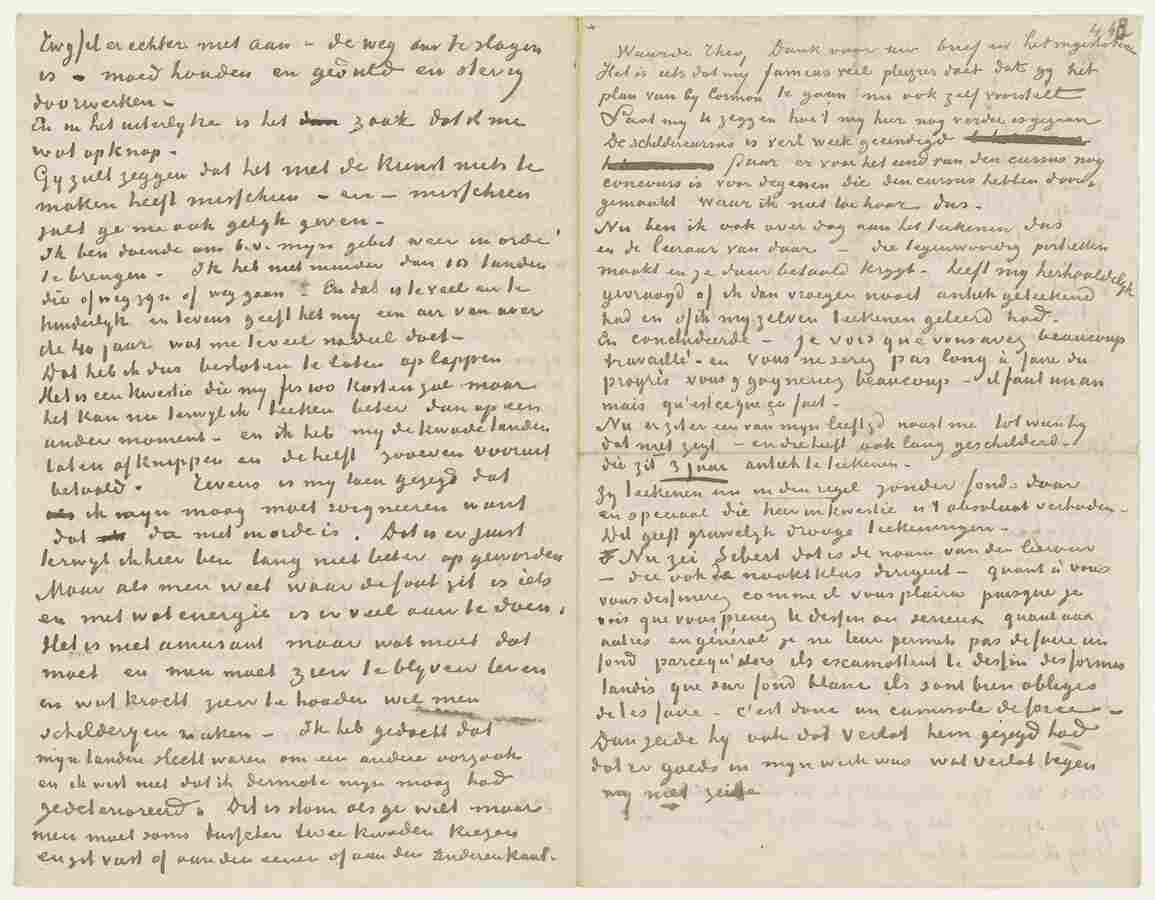 Twyfel er echter niet aan – de weg om te slagen
is – moed houden en geduld en stevig
doorwerken –
En in het uiterlyke is het zaak dat ik me
wat opknap –
Gy zult zeggen dat het met de kunst niets te
maken heeft misschien – en – misschien
zult ge me ook gelyk geven –
Ik ben doende om b.v. myn gebit weer in orde
te brengen – Ik heb niet minder dan 10 tanden
die of weg zyn of weg gaan – En dat is te veel en te
hinderlyk en tevens geeft het my een air van over
de 40 jaar wat me te veel nadeel doet –
Dat heb ik dus besloten te laten oplappen
Het is een kwestie die my frs 100 kosten zal maar
het kan nu terwyl ik teeken beter dan op een
ander moment – en ik heb my de kwade tanden
laten afknippen en de helft zooeven vooruit
betaald. Tevens is my toen gezegd dat
ik myn maag moet soigneeren want
dat die niet in orde is. Dat is er juist
terwyl ik hier ben lang niet beter op geworden
Maar als men weet waar de fout zit is iets
en met wat energie is er veel aan te doen.
Het is niet amusant maar wat moet dat
moet en men moet zien te blyven leven
en wat kracht zien te houden wil men
schilderyen maken – Ik heb gedacht dat
myn tanden slecht waren om een andere oorzaak
en ik wist niet dat ik dermate myn maag had
gedeterioreerd. Dit is dom als ge wilt maar
men moet soms tusschen twee kwaden kiezen
en zit vast of aan den eenen of aan den anderen kant.
Waarde Theo, Dank voor uw brief en het ingeslotene
Het is iets dat my fameus veel plezier doet dat gy het
plan van by Cormon te gaan nu ook zelf voorstelt
Laat my U zeggen hoe 't my hier nog verder is gegaan
De schildercursus is verl. week geeindigd
daar er voor het eind van den cursus nog
concours is voor degenen die den cursus hebben door
gemaakt waar ik niet toe hoor dus –
Nu ben ik ook over dag aan het teekenen dus
en de leeraar van daar – die tegenwoordig portretten
maakt en ze duur betaald krygt – heeft my herhaaldelyk
gevraagd of ik dan vroeger nooit antiek geteekend
had en of ik my zelven teekenen geleerd had.
En concludeerde – je vois que vous avez beaucoup
travaillé – en vous ne serez pas long à faire du
progrès vous y gagnerez beaucoup – il faut un an
mais qu'est ce que ça fait –
Nu er zit er een van myn leeftyd naast me tot wien hy
dat niet zegt – en die heeft ook lang geschilderd –
die zit 3 jaar antiek te teekenen –
Zy teekenen nu in den regel zonder fonds daar
en speciaal die heer in kwestie is 't absoluut verboden –
Dat geeft gruwelyk drooge teekeningen –
Nu zei Sebert dat is de naam van den leeraar
– die ook de naaktklas dirigeert – quant à vous
vous dessinerez comme il vous plaira puisque je
vois que vous prenez le dessin au serieux quant aux
autres en général je ne leur permets pas de faire un
fond parcequ'alors ils escamottent le dessin des formes
tandis que sur fond blanc ils sont bien obligés
de les faire – C'est donc un camisole de force –
Dan zeide hy ook dat Verlat hem gezegd had
dat er goeds in myn werk was wat Verlat tegen
my niet zeide